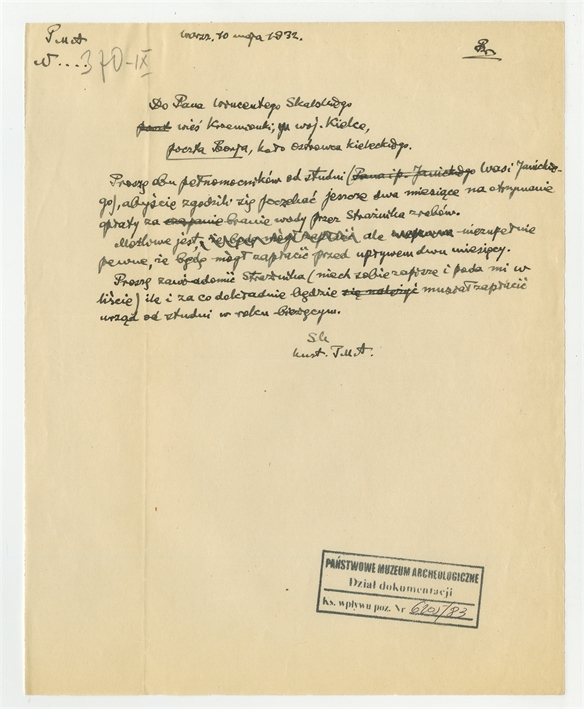 PMA Warsz. 10 maja 1932.
N .... 370-IX
Do Pana Wincentego Skalskiego
wieś Krzemionki, woj. Kielce,
poczta Bodzechów, koło Ostrowca Kieleckiego.
Proszę obu pełnomocników od studni (Pana i p. Janickiego Wasi Janickie-
go), abyście zgodzili się poczekać jeszcze dwa miesiące na otrzymanie
opłaty za czerpanie branie wody przez Strażnika zrębów.
Możliwe jest, że będę mógł zapłacić ale niezupełnie
pewne, że będę mógł zapłacić przed upływem dwu miesięcy.
Proszę zawiadomić Strażnika (niech sobie zapisze i poda mi w
liście) ile i za co dokładnie będzie się należyć musiał zapłacić
urząd od studni w roku bieżącym.
Sk
kust. PMA.
PAŃSTWOWE MUZEUM ARCHEOLOGICZNE
Dział dokumentacji
Ks. wpływu poz. Nr 6201/83